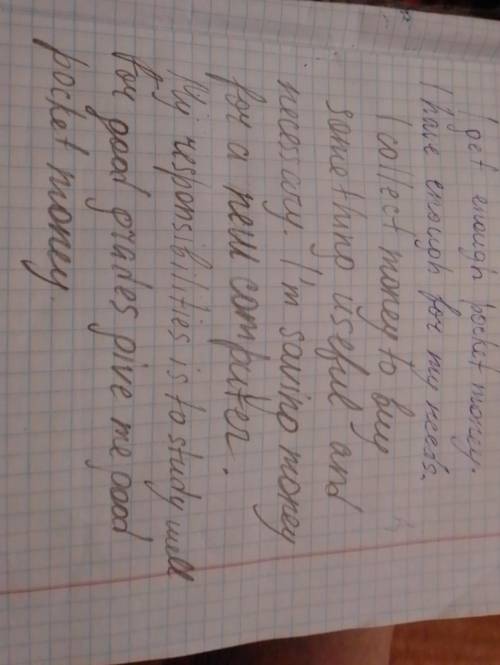 I get enough pocket money.
I have enough for my needs.
I collect money to buy
something useful and
necessary. I'm saving money
for a new computer.
My responsibilities is to study well
for good grades give me good
pocket money.